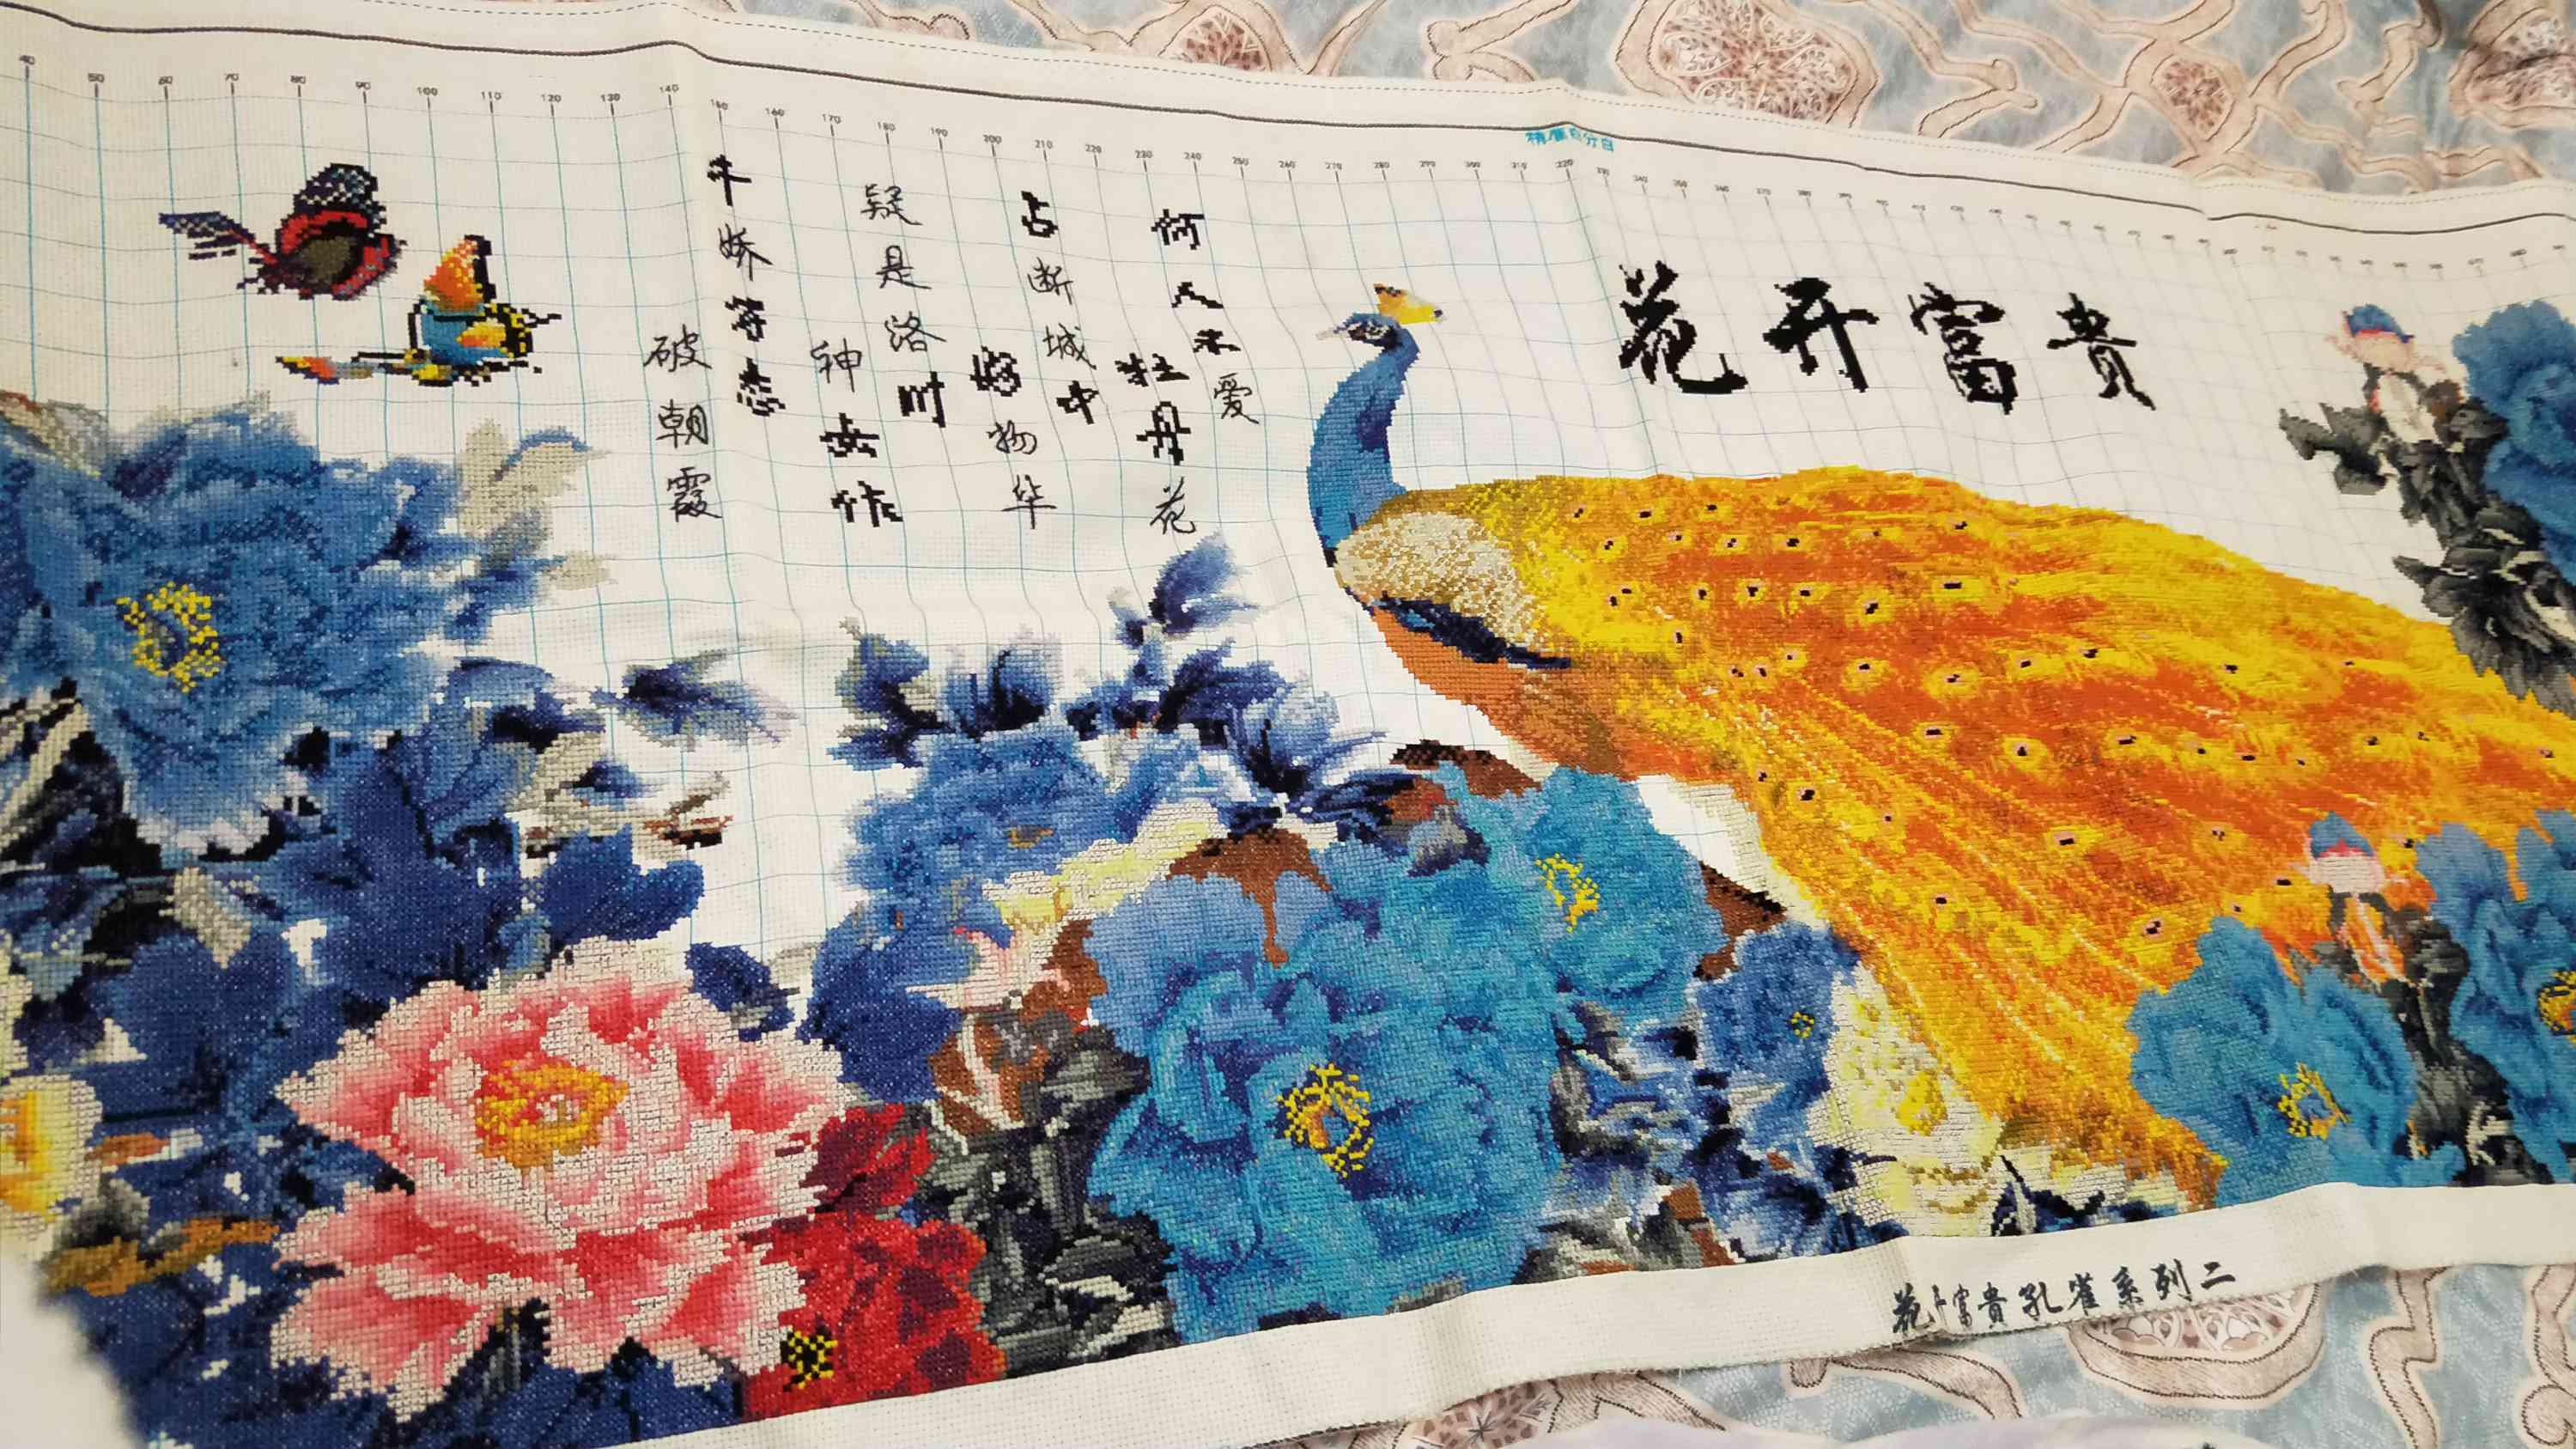 40 50 60 70 80 90 100 110 120 130 140 150 160 170 180 190 200 210 220 230 240 250 260 270 280 290 300 310 320 330 340 350 360 370 380 390
花开富貴
何人不爱
牡丹花
占断城中
好物华
疑是洛川
神女作
千娇萬态
破朝霞
花开富贵孔雀系列二